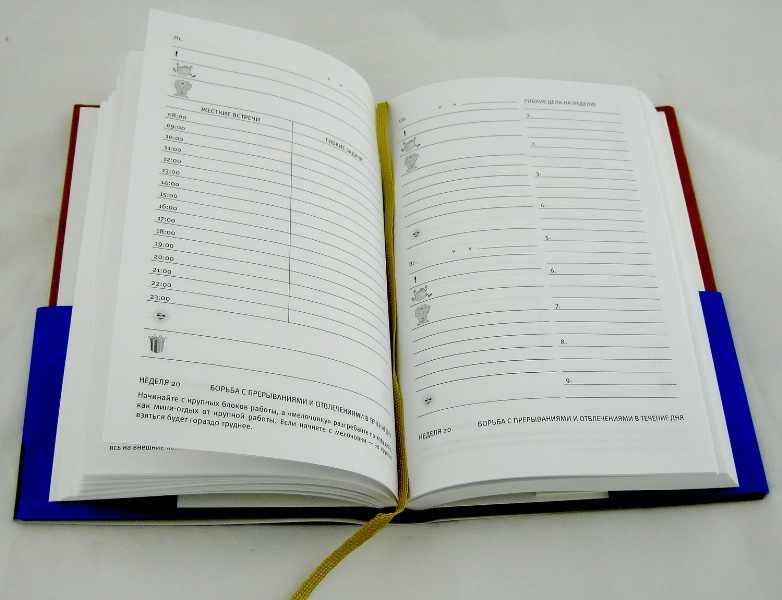 Пт.
!
ЖЕСТКИЕ ВСТРЕЧИ
ГИБКИЕ ЗАДАЧИ
08:00
09:00
10:00
11:00
12:00
13:00
14:00
15:00
16:00
17:00
18:00
19:00
20:00
21:00
22:00
23:00
НЕДЕЛЯ 20 БОРЬБА С ПРЕРЫВАНИЯМИ И ОТВЛЕЧЕНИЯМИ В ТЕЧЕНИЕ ДНЯ
Начинайте с крупных блоков работы, а «мелочовку» разгребайте
как мини-отдых от крупной работы. Если начнете с мелочовки — за крупное
взяться будет гораздо труднее.
на внешние
Сб.
!
Вс.
!
ГИБКИЕ ЦЕЛИ НА НЕДЕЛЮ
1.
2.
3.
4.
5.
6.
7.
8.
9.
НЕДЕЛЯ 20 БОРЬБА С ПРЕРЫВАНИЯМИ И ОТВЛЕЧЕНИЯМИ В ТЕЧЕНИЕ ДНЯ